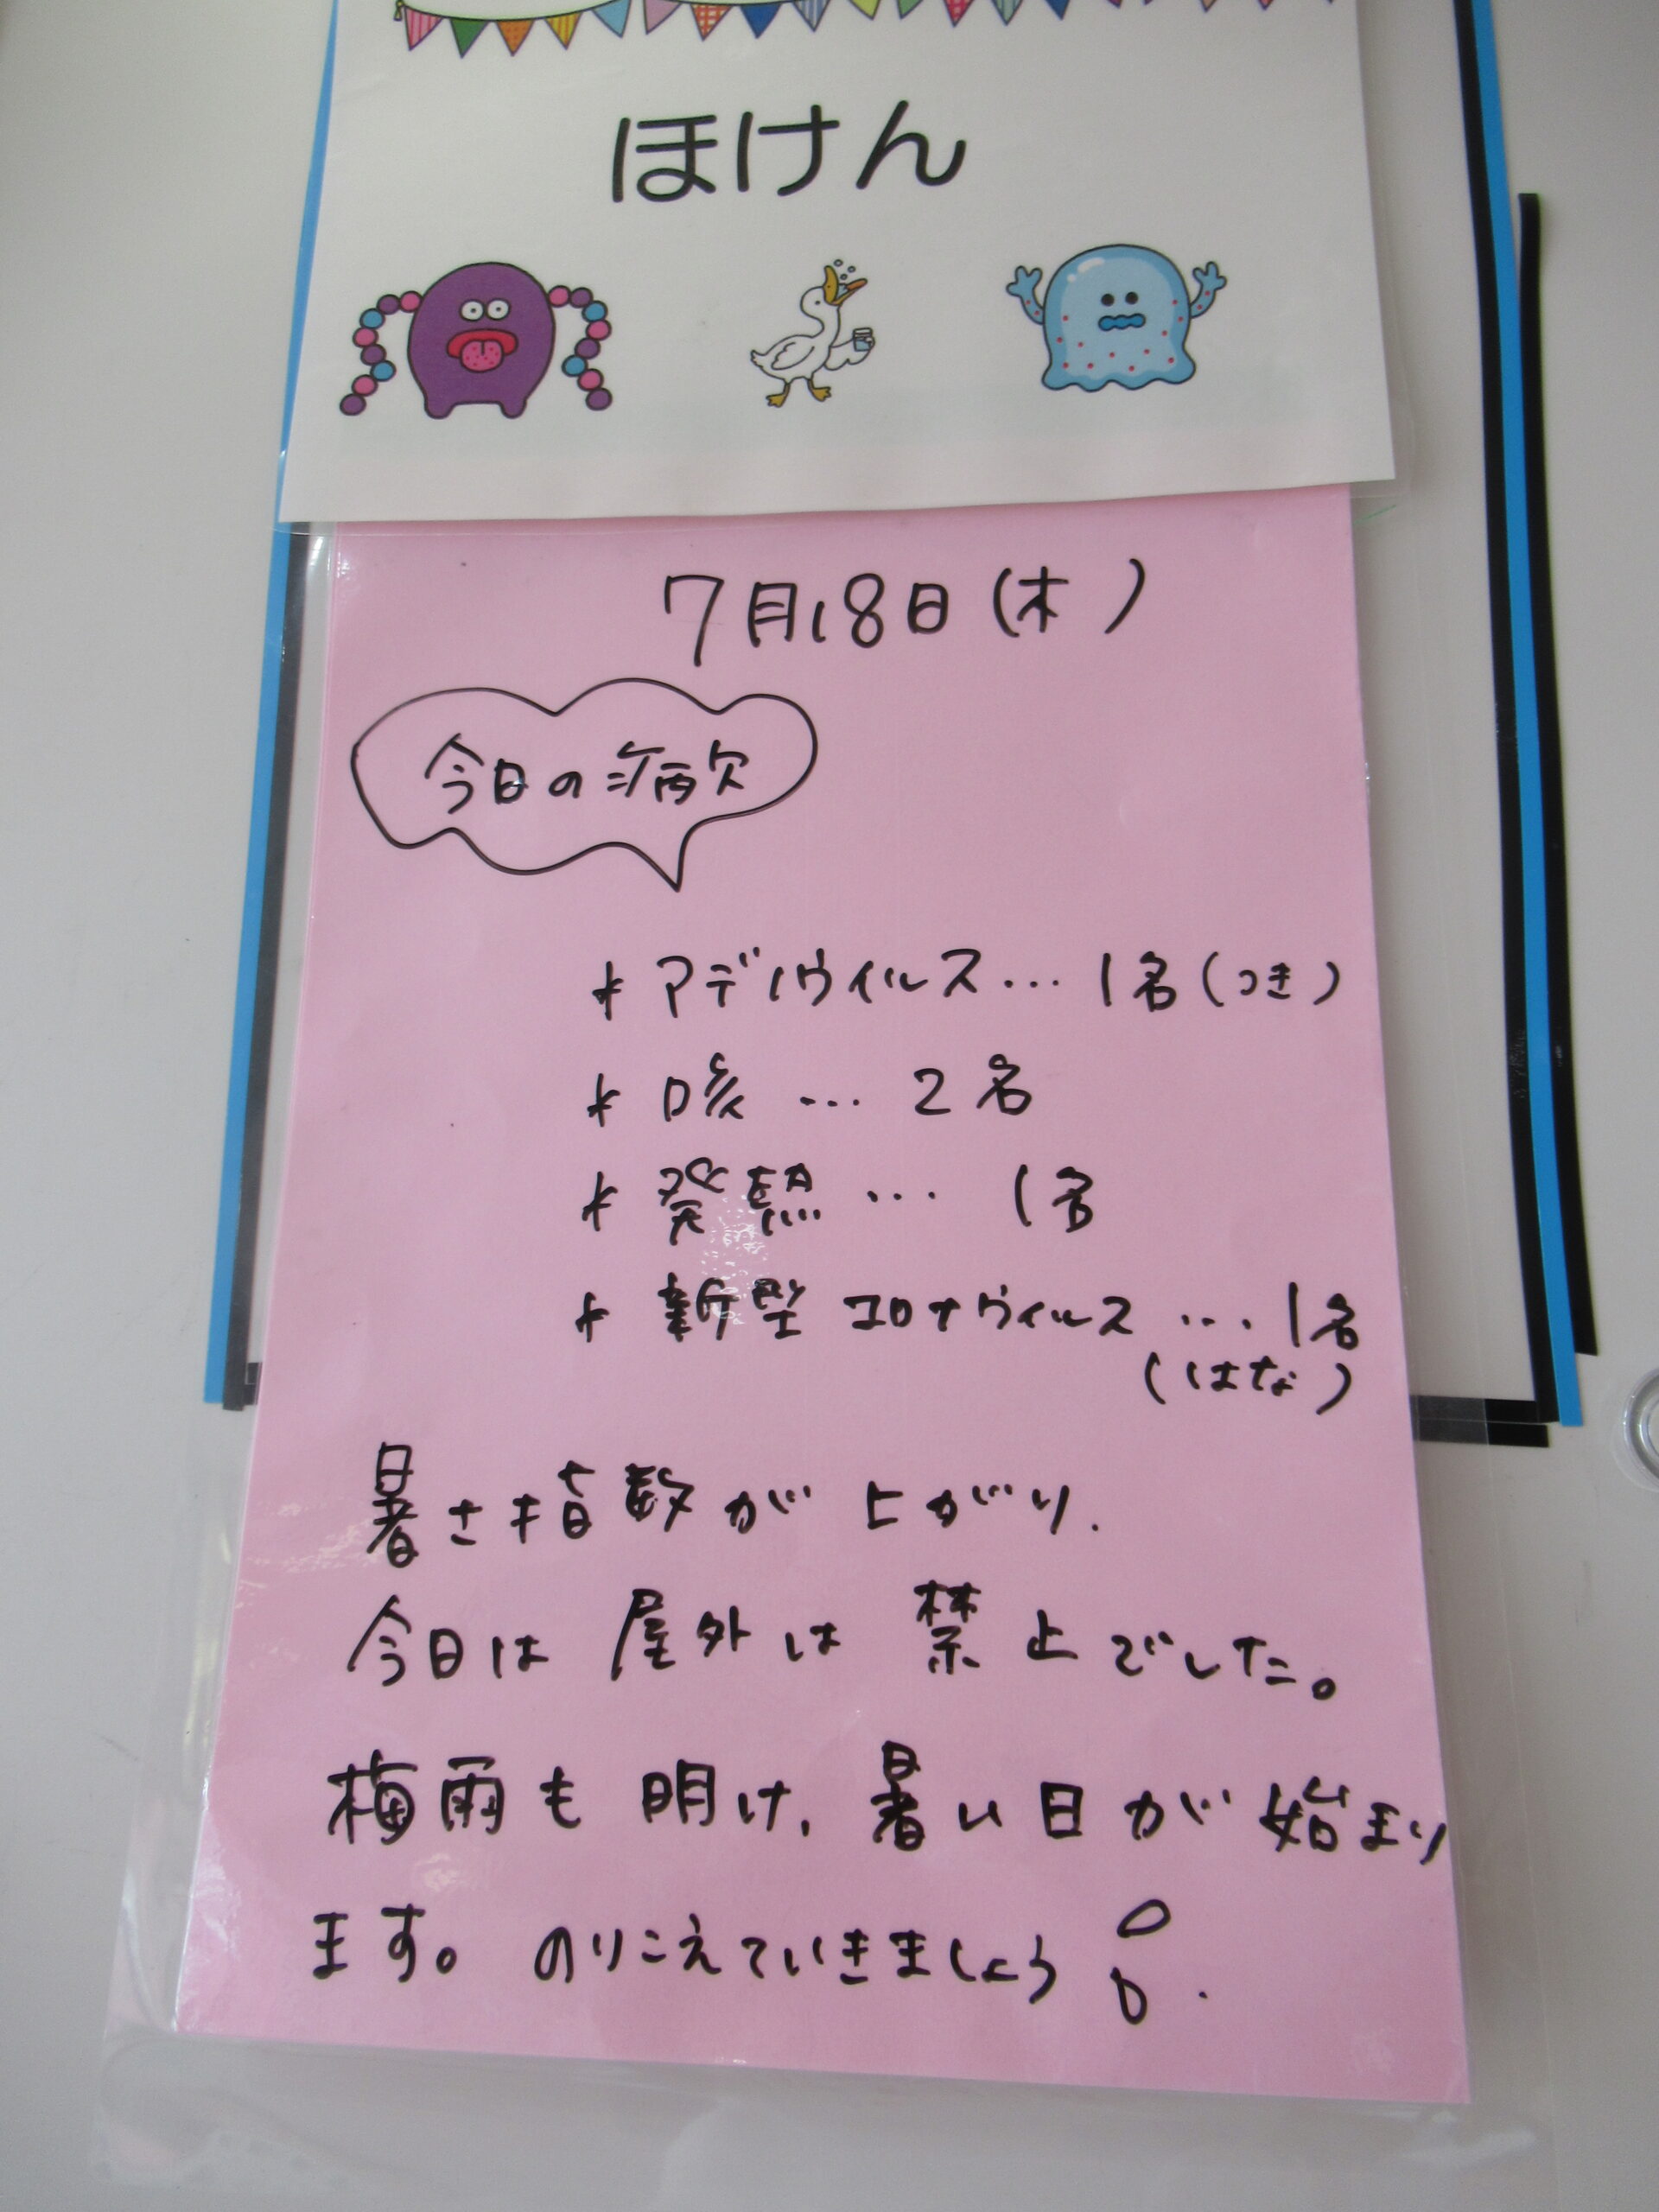 ほけん
7月18日(木)
今日の病欠
* アデノウイルス… 1名(つき)
* 咳 … 2名
* 発熱 … 1名
* 新型コロナウイルス …1名
(はな)
暑さ指数が上がり、
今日は屋外は禁止でした。
梅雨も明け、暑い日が始まり
ます。のりこえていきましょう!